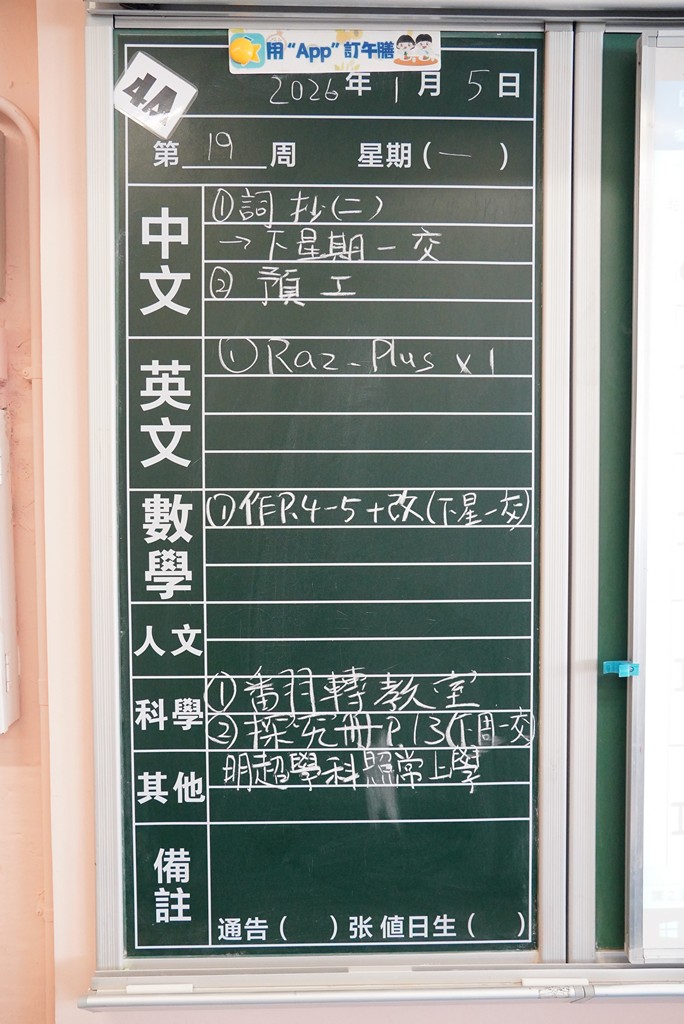 用 “App” 訂午膳
4A
2026年 1月 5日
第 19 周 星期(一)
中文
①詞抄(二)
→下星期一交
②預工
英文
①Raz-Plus x1
數學
①作P.4-5+改(下星一交)
人文
科學
①翻轉教室
②探究冊P.13(下周一交)
其他
明起學科照常上學
備註
通告( )张 值日生( )